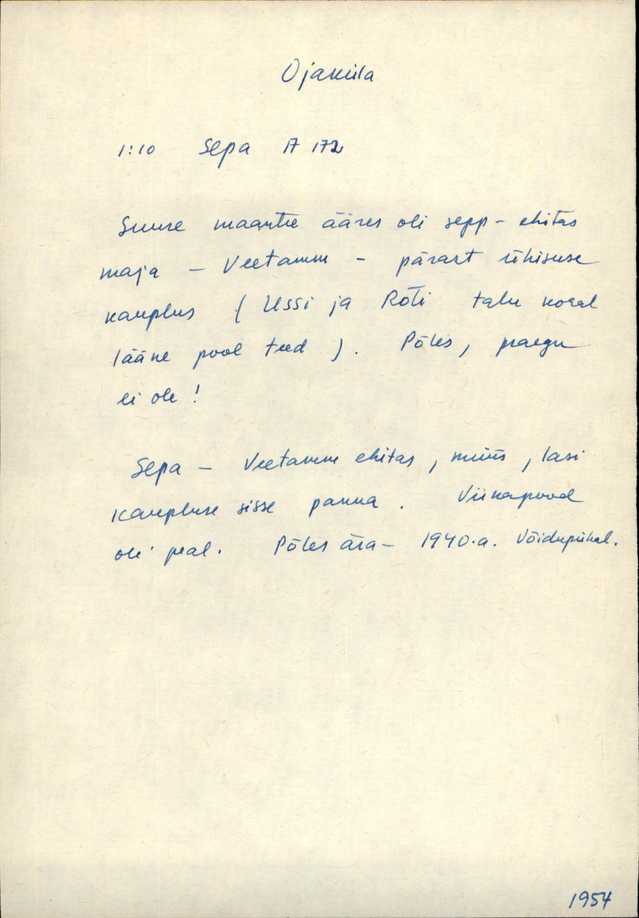 Ojaküla
1:10 Sepa A 172
Suure maantee ääres oli sepp - ehitas
maja - Veetamm - pärast ühisuse
kauplus (Ussi ja Rõti talu kohal
lääne pool teed). Põles, praegu
ei ole!
Sepa - Veetamm ehitas, müüs, lasi
kaupluse sisse panna. Viinapood
oli peal. Põles ära - 1940.a. Võidupühal.
1954